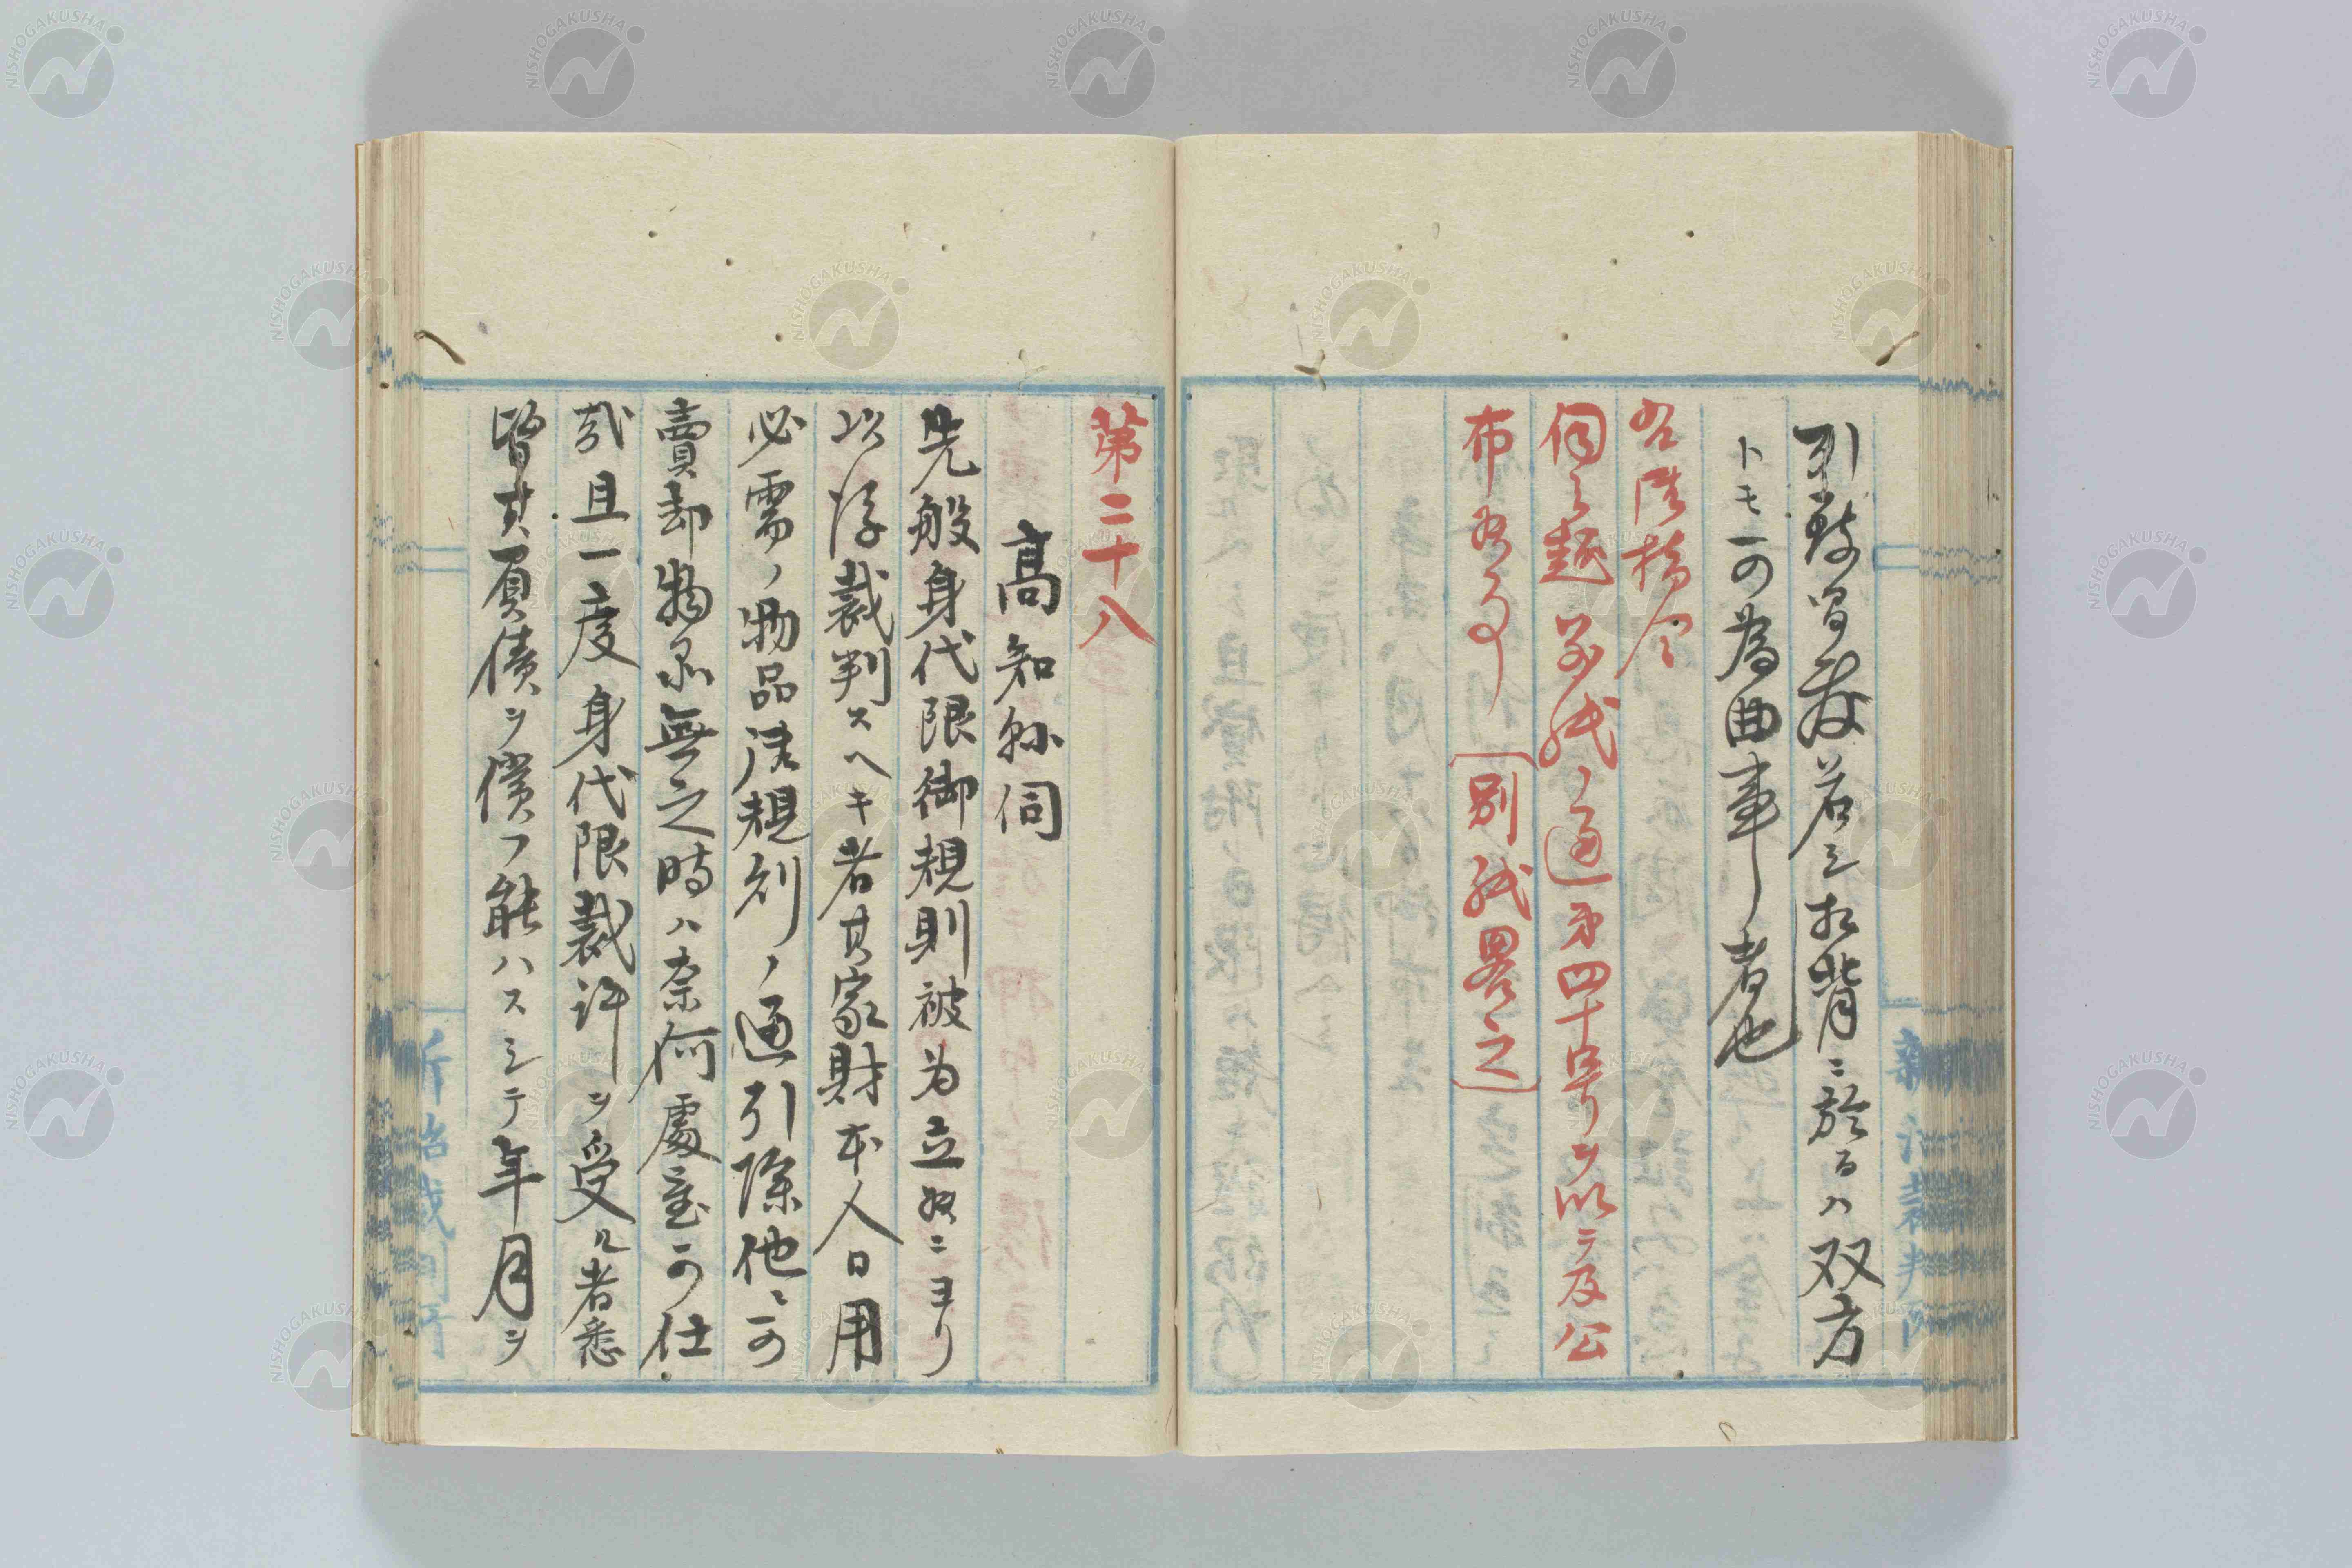 引致習慕若シ相背ニ於るハ双方
トモ可為曲事者也
右陸指令
伺之趣別紙ノ通第四十号ヲ以テ及公
布候事〔別紙畧之〕
第二十八
高知縣伺
先般身代限御規則被為立候ニヨリ
以済裁判スヘキ者其家財本人日用
必需ノ物品従規則ノ通引除他ニ可
賣却物品無之時ハ奈何處置可仕
哉且一度身代限裁許ヲ受ル者悉
皆其負債ヲ償フ能ハスシテ年月ヲ
NISHOGAKUSHA